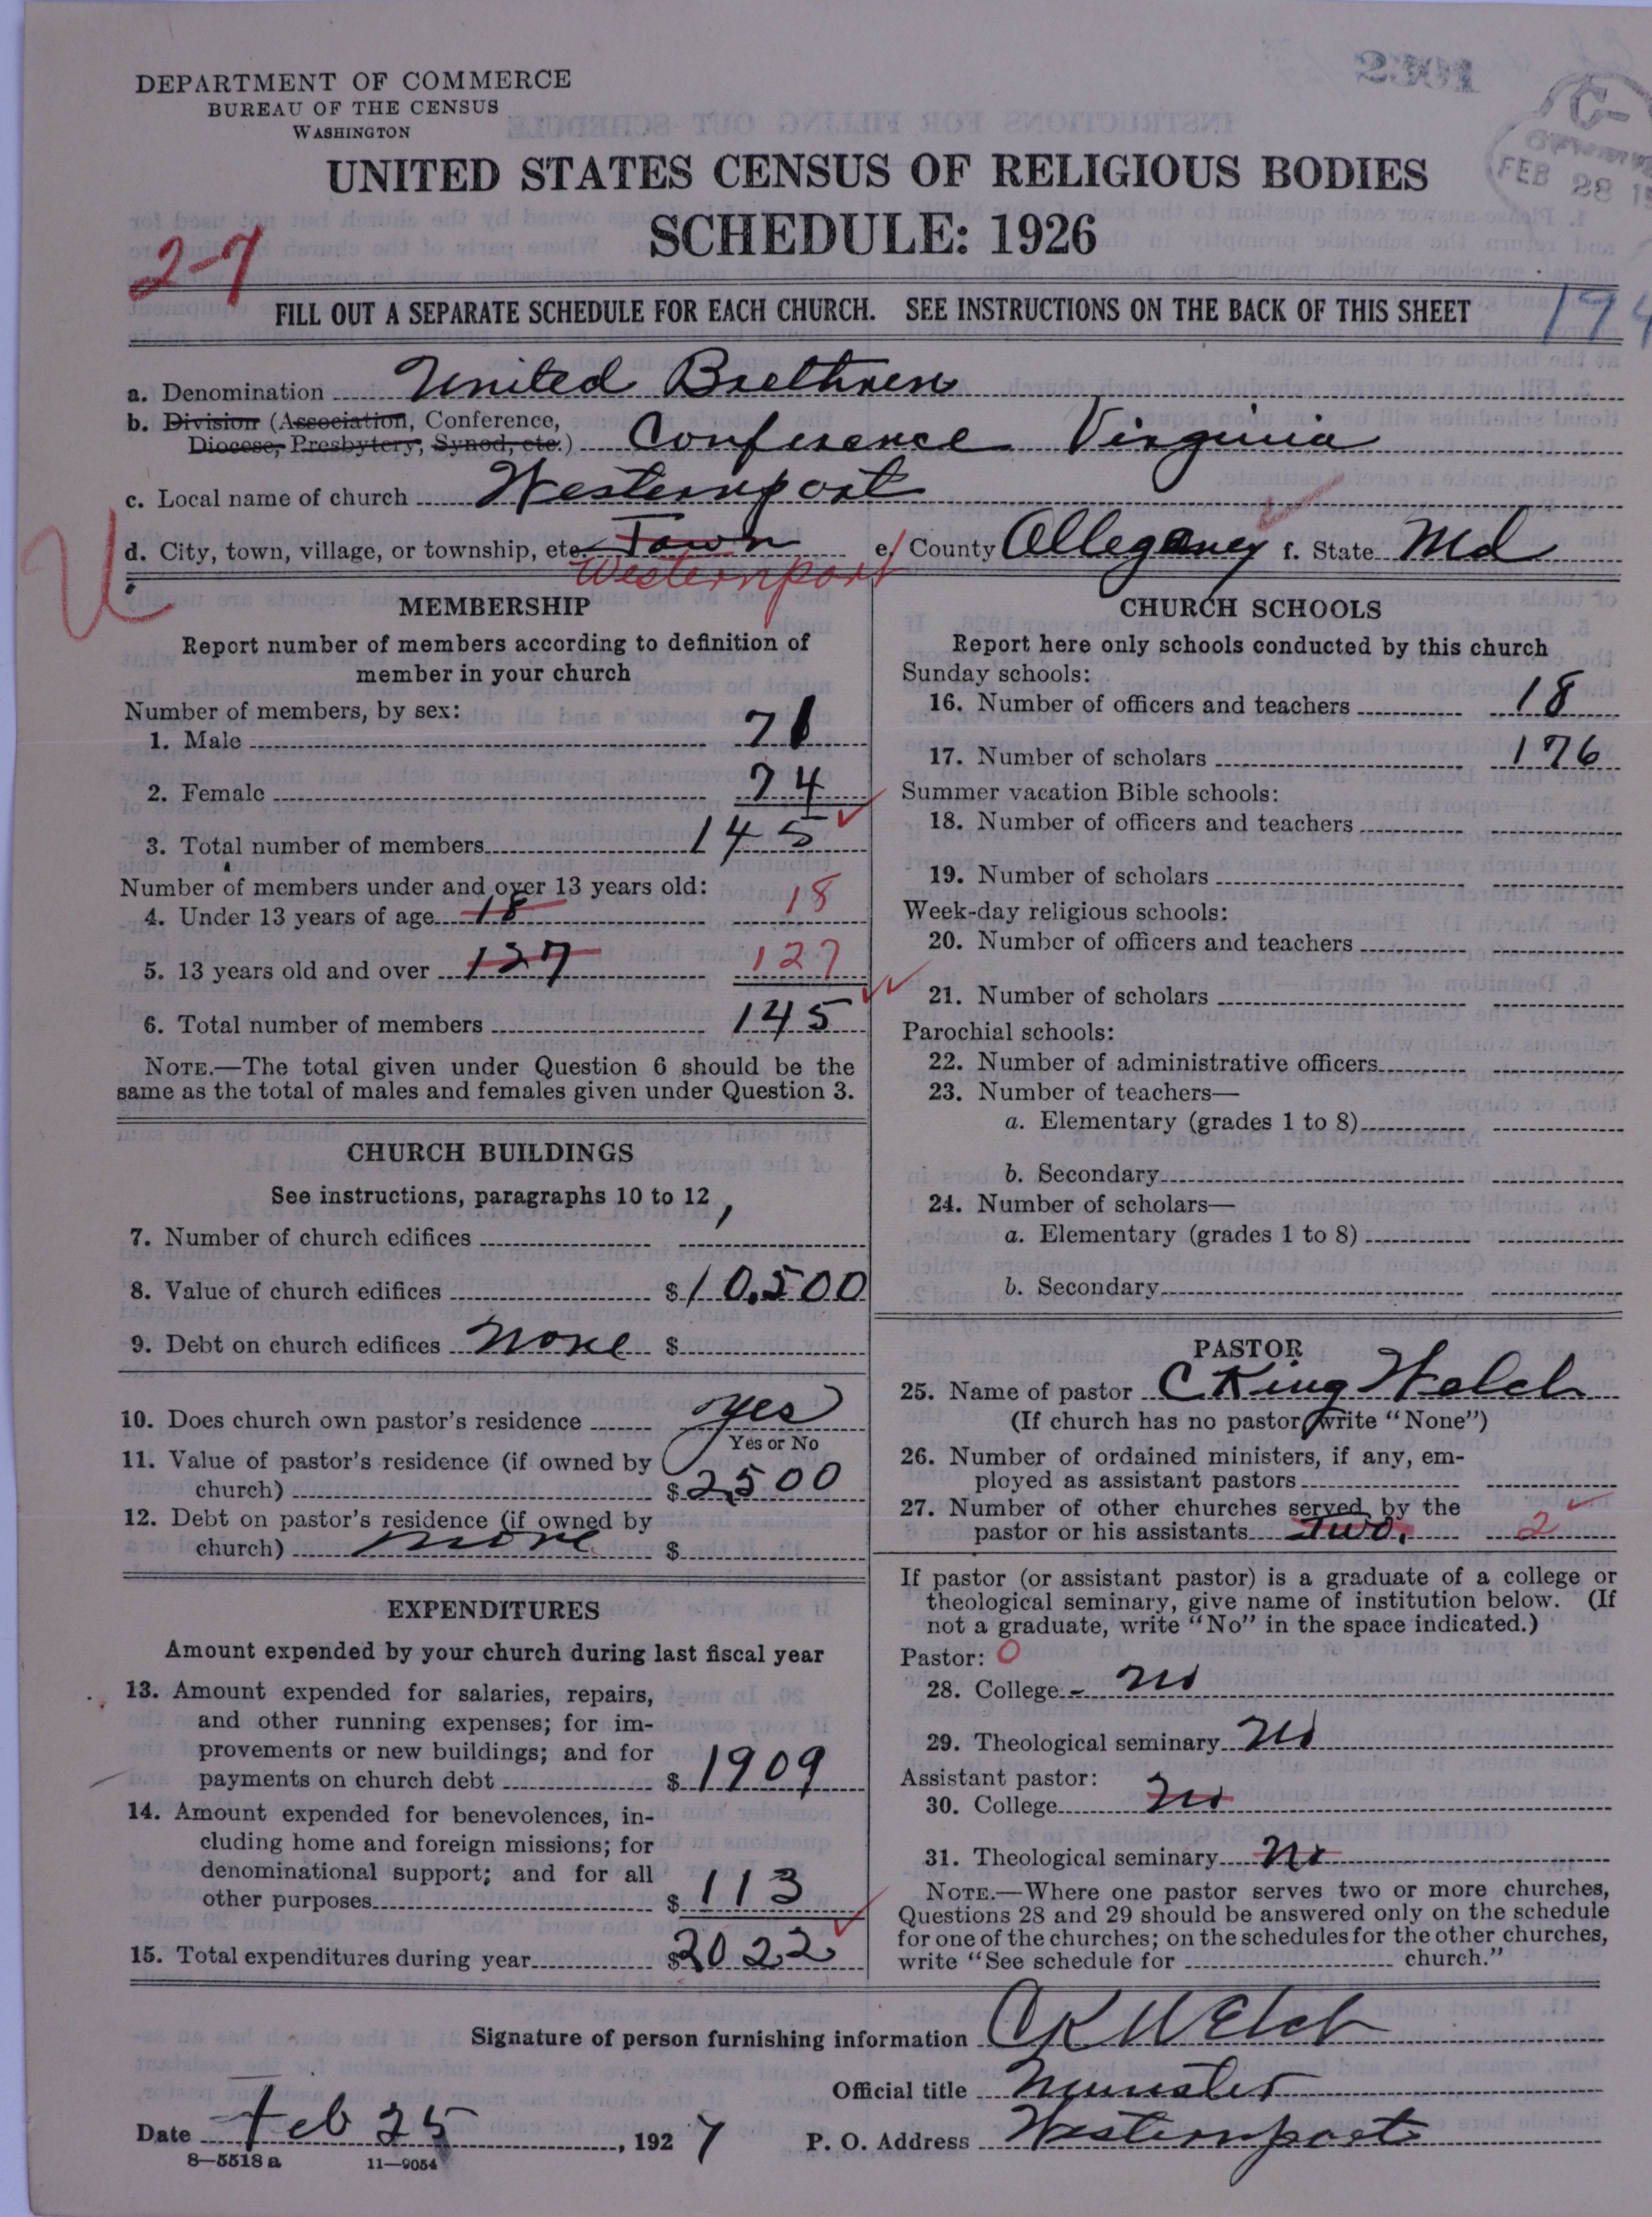 DEPARTMENT OF COMMERCE
BUREAU OF THE CENSUS
WASHINGTON
UNITED STATES CENSUS OF RELIGIOUS BODIES
SCHEDULE: 1926
FEB 28
27
FILL OUT A SEPARATE SCHEDULE FOR EACH CHURCH. SEE INSTRUCTIONS ON THE BACK OF THIS SHEET
a. Denomination United Brethren
b. Division (Association, Conference,
Diocese, Presbytery, Synod, etc.) Conference Virginia
c. Local name of church Westernport
d. City, town, village, or township, etc. Town e. County Allegany f. State Md
Westernport
U
MEMBERSHIP
Report number of members according to definition of
member in your church
Number of members, by sex:
1. Male 71
2. Female 74
3. Total number of members 145
Number of members under and over 13 years old:
4. Under 13 years of age 18 18
5. 13 years old and over 127 127
6. Total number of members 145
NOTE.—The total given under Question 6 should be the
same as the total of males and females given under Question 3.
CHURCH BUILDINGS
See instructions, paragraphs 10 to 12
7. Number of church edifices 1
8. Value of church edifices $10,500
9. Debt on church edifices None $
10. Does church own pastor's residence yes
Yes or No
11. Value of pastor's residence (if owned by
church) $2500
12. Debt on pastor's residence (if owned by
church) none $
EXPENDITURES
Amount expended by your church during last fiscal year
13. Amount expended for salaries, repairs,
and other running expenses; for im-
provements or new buildings; and for
payments on church debt $1909
14. Amount expended for benevolences, in-
cluding home and foreign missions; for
denominational support; and for all
other purposes $113
15. Total expenditures during year $2022
CHURCH SCHOOLS
Report here only schools conducted by this church
Sunday schools:
16. Number of officers and teachers 18
17. Number of scholars 176
Summer vacation Bible schools:
18. Number of officers and teachers
19. Number of scholars
Week-day religious schools:
20. Number of officers and teachers
21. Number of scholars
Parochial schools:
22. Number of administrative officers
23. Number of teachers—
a. Elementary (grades 1 to 8)
b. Secondary
24. Number of scholars—
a. Elementary (grades 1 to 8)
b. Secondary
PASTOR
25. Name of pastor C King Welch
(If church has no pastor, write "None")
26. Number of ordained ministers, if any, em-
ployed as assistant pastors
27. Number of other churches served by the
pastor or his assistants Two. 2
If pastor (or assistant pastor) is a graduate of a college or
theological seminary, give name of institution below. (If
not a graduate, write "No" in the space indicated.)
Pastor: 0
28. College No
29. Theological seminary No
Assistant pastor:
30. College No
31. Theological seminary No
NOTE.—Where one pastor serves two or more churches,
Questions 28 and 29 should be answered only on the schedule
for one of the churches; on the schedules for the other churches,
write "See schedule for church."
Signature of person furnishing information C K Welch
Official title Minister
Date Feb 25, 1927 P. O. Address Westernport
8—5518 a 11—9054